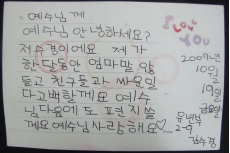 예수님께
예수님 안녕하세요?
저 수경이에요 제가
한달동안 엄마말 않
듣고 친구들과 싸운일
다고백할께요 예수
님 다음에 도 편지쓸
께요 예수님 사랑해요♡
I LOVE
YOU
2007년
10월
19일
금요일
유년부
2-9
김수경